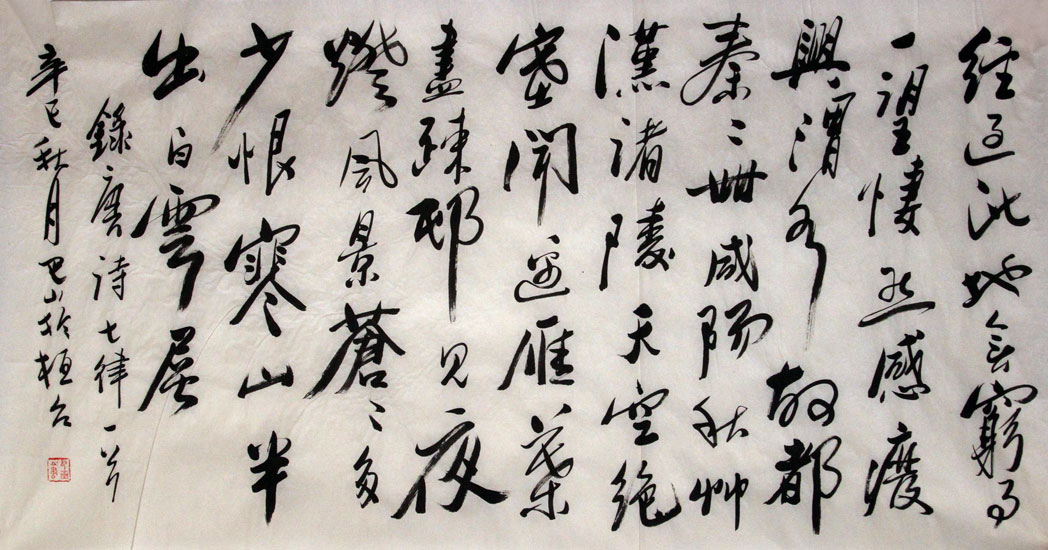 經過此地無窮事
一望悽然感廢
興渭水故都
秦二世咸陽秋艸
漢諸陵天空絕
塞聞邊雁葉
盡疎邨見夜
燈風景蒼〻多
少恨寒山半
出白雲層
錄唐詩七律一首
辛巳秋月巴山於桓台